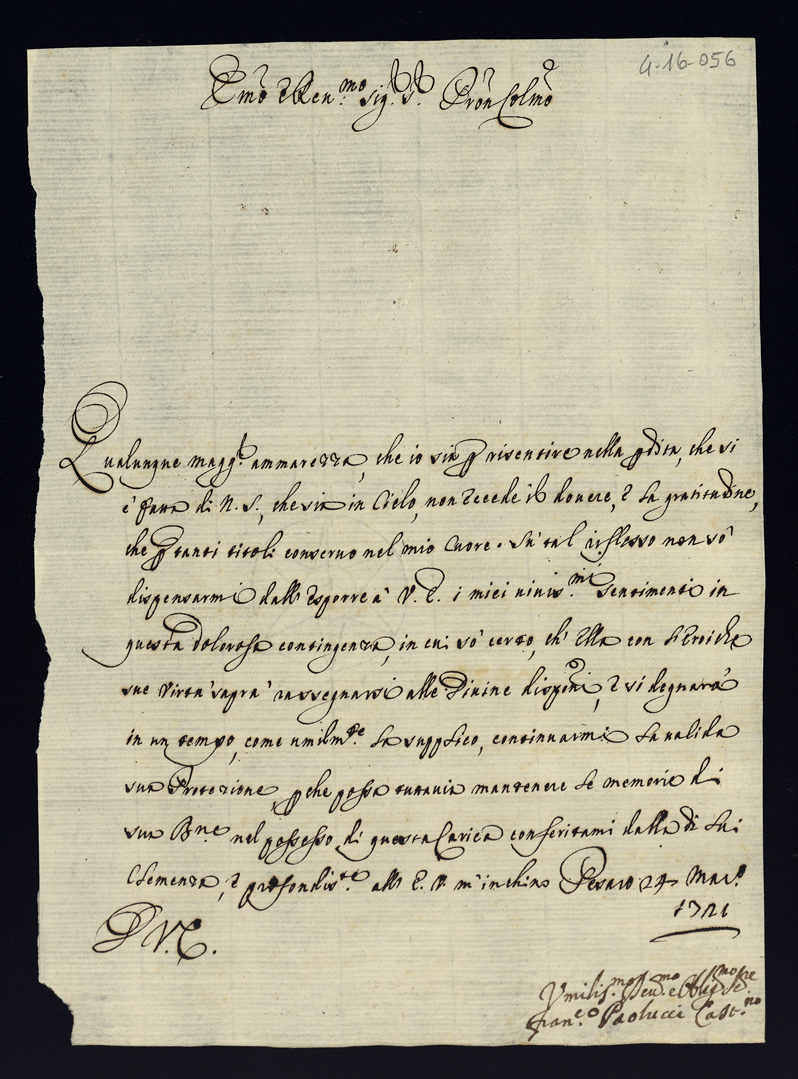 G-16-056
Emo e Ren.mo Sig.r S.r Pron Colmo
Qualunque magg.r ammarezza, che io sia p risentire nella pdita, che si
è fatta di N. S., che sia in Cielo, non eccede il dovere, e la gratitudine,
che p tanti titoli conservo nel mio Cuore. Sù tal riflesso non sò
dispensarmi dall'esporre à V. E. i miei vivis.mi sentimenti in
questa dolorosa contingenza, in cui sò certo, ch'Ella con l'Eroiche
sue Virtù saprà rassegnarsi alle Divine disponi, e si degnarà
in un tempo, come umilm.te la supplico, continuarmi la valida
sua Protezione, pche possa tuttavia mantenere le memorie di
sua Bne nel possesso di questa Carica conferitami dalla di lui
Clemenza, e profondis.te all'E. V. m'inchino Pesaro 24 Mar.o
1721
D V. E.
Vmilis.mo Deu.mo e Obl.mo Se.re
Fran.co Paolucci Cast.no